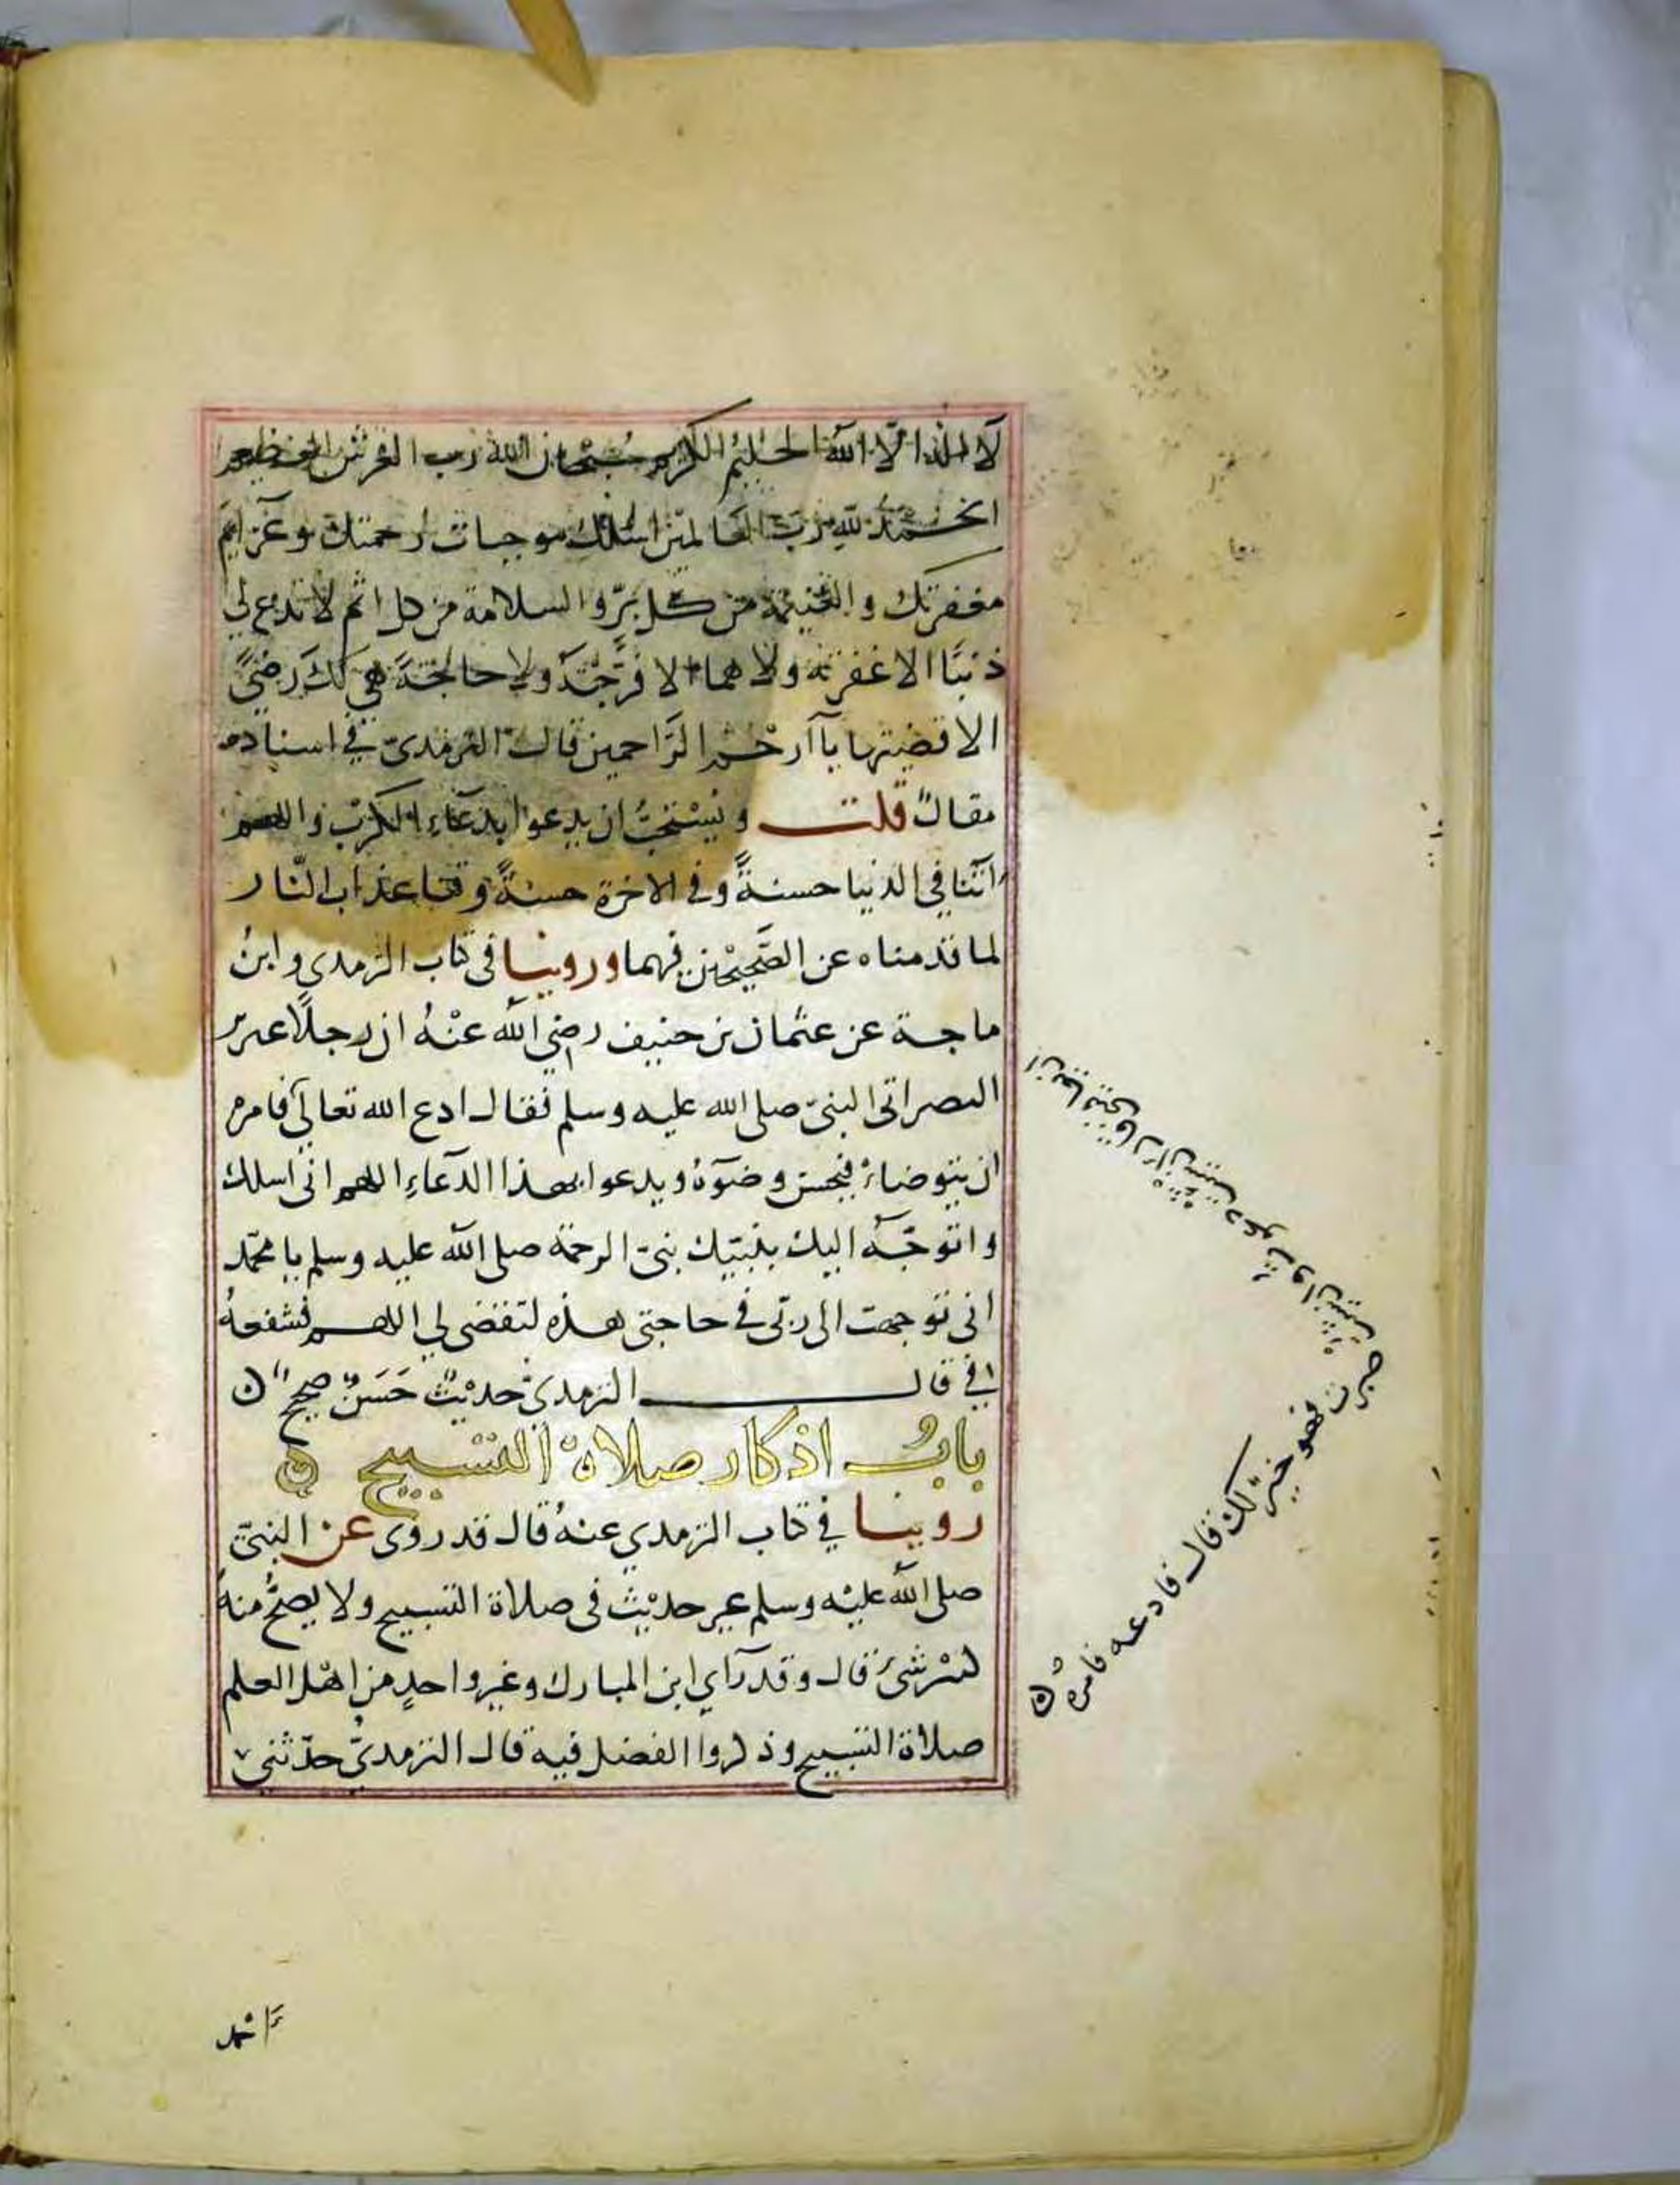 لَا اله الّا اللهُ الحليمُ الكريم سُبْحان الله رب العرش العظيم
الحَمدُ للهِ رَبّ العالمين اسلك موجبات رحمتك وعَزايم
مغفرتك والغنيمة من كل برّ والسلامة من كل اثم لا تدع لي
ذنبًا الا غفرته ولا هما الا فرّجتَه ولا حاجَةً هي لكَ رِضًى
الا قضيتها يا آرحمَ الرّاحمين قال الترمذى في اسناده
مقالٌ قلت ويُسْتَحبُّ ان يدعوا بدعاءِ الكرْب واللهم
اتنا في الدنيا حسنةً وفي الاخرة حسنةً وقنا عذاب النّار
لما قدمناه عن الصَّحِيْحَين فيهما وروينا في كتاب الترمدي وابنُ
ماجة عن عثمان بن حنيف رضي الله عنْهُ ان رجلًا ضرير
البصر اتى النبيّ صلى الله عليه وسلم فقال ادع الله تعالى
ان يعافيني قال ان شيت دعوتُ وان شيت
صبرت فهو خيرٌ لك قال فادعه فامرهُ ن
فامره
ان يتوضاء فيحسن وضوَٓهُ ويدعوا بهذا الدّعاءِ اللهم انى اسلك
واتوجّهُ اليك بنبيّك نبىّ الرحمْة صلى الله عليه وسلم يا محمّد
انى توجهت الى ربّى في حاجتى هذه لتقضى لي اللهم فشفعهُ
فيّ قال الترمدىّ حديْثٌ حَسَنٌ صحيح ن
بابُ اذكار صلاة التسبيح ن
روينا في كتاب الترمدي عنهُ قال قد روى عن النبيّ
صلى الله عليْه وسلم غير حديْث فى صلاة التسبيح ولا يصحُّ منهُ
كبير شئ قال وقد رَآي ابن المبارك وغير واحدٍ من اهْل العلم
صلاة التسبيح وذكروا الفضل فيه قال الترمديُّ حدّثني
احمد